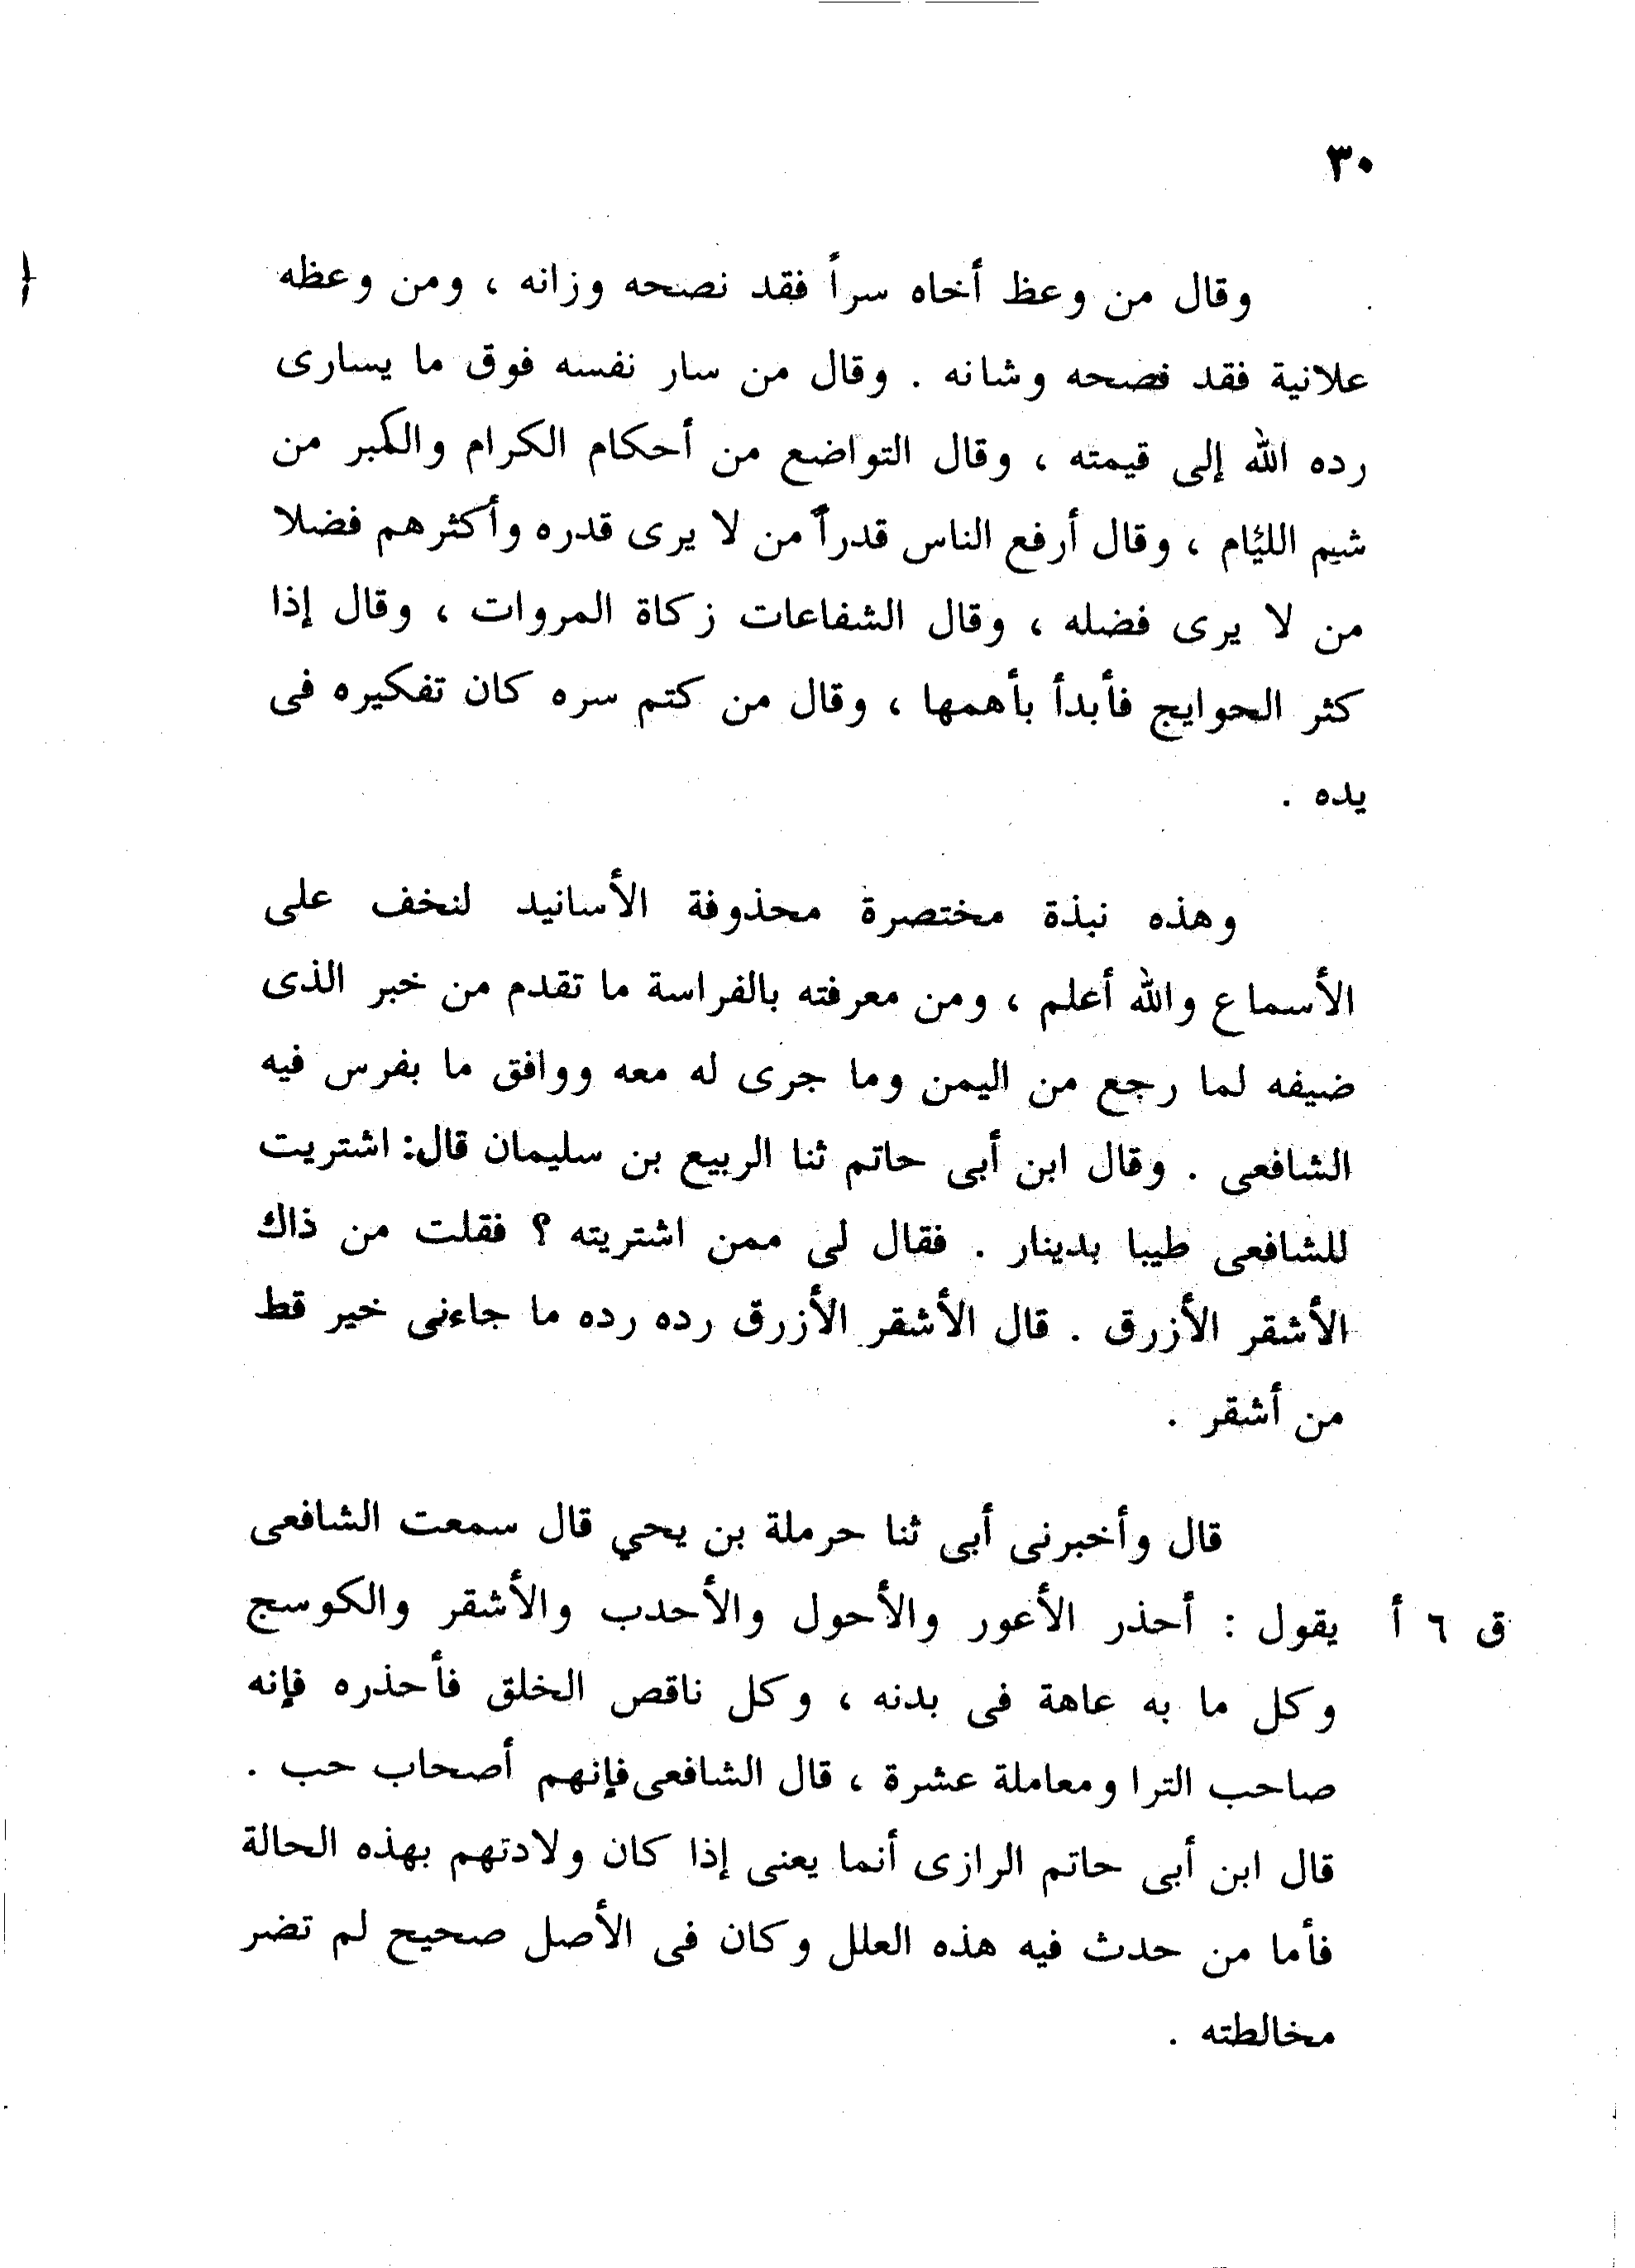 ٣٠
وقال من وعظ أخاه سراً فقد نصحه وزانه ، ومن وعظه
علانية فقد فضحه وشانه . وقال من سار نفسه فوق ما يسارى
رده الله إلى قيمته ، وقال التواضع من أحكام الكرام والكبر من
شيم اللئام ، وقال أرفع الناس قدراً من لا يرى قدره وأكثرهم فضلا
من لا يرى فضله ، وقال الشفاعات زكاة المروات ، وقال إذا
كثر الحوايج فأبدأ بأهمها ، وقال من كتم سره كان تفكيره فى
يده .
وهذه نبذة مختصرة محذوفة الأسانيد لنخف على
الأسماع والله أعلم ، ومن معرفته بالفراسة ما تقدم من خبر الذى
ضيفه لما رجع من اليمن وما جرى له معه ووافق ما بفرس فيه
الشافعى . وقال ابن أبى حاتم ثنا الربيع بن سليمان قال: اشتريت
للشافعى طيبا بدينار . فقال لى ممن اشتريته ؟ فقلت من ذاك
الأشقر الأزرق . قال الأشقر الأزرق رده رده ما جاءنى خير قط
من أشقر .
قال وأخبرنى أبى ثنا حرملة بن يحي قال سمعت الشافعى
ق ٦ أ يقول : أحذر الأعور والأحول والأحدب والأشقر والكوسج
وكل ما به عاهة فى بدنه ، وكل ناقص الخلق فأحذره فإنه
صاحب الترا ومعاملة عشرة ، قال الشافعى فإنهم أصحاب حب .
قال ابن أبى حاتم الرازى أنما يعنى إذا كان ولادتهم بهذه الحالة
فأما من حدث فيه هذه العلل وكان فى الأصل صحيح لم تضر
مخالطته .